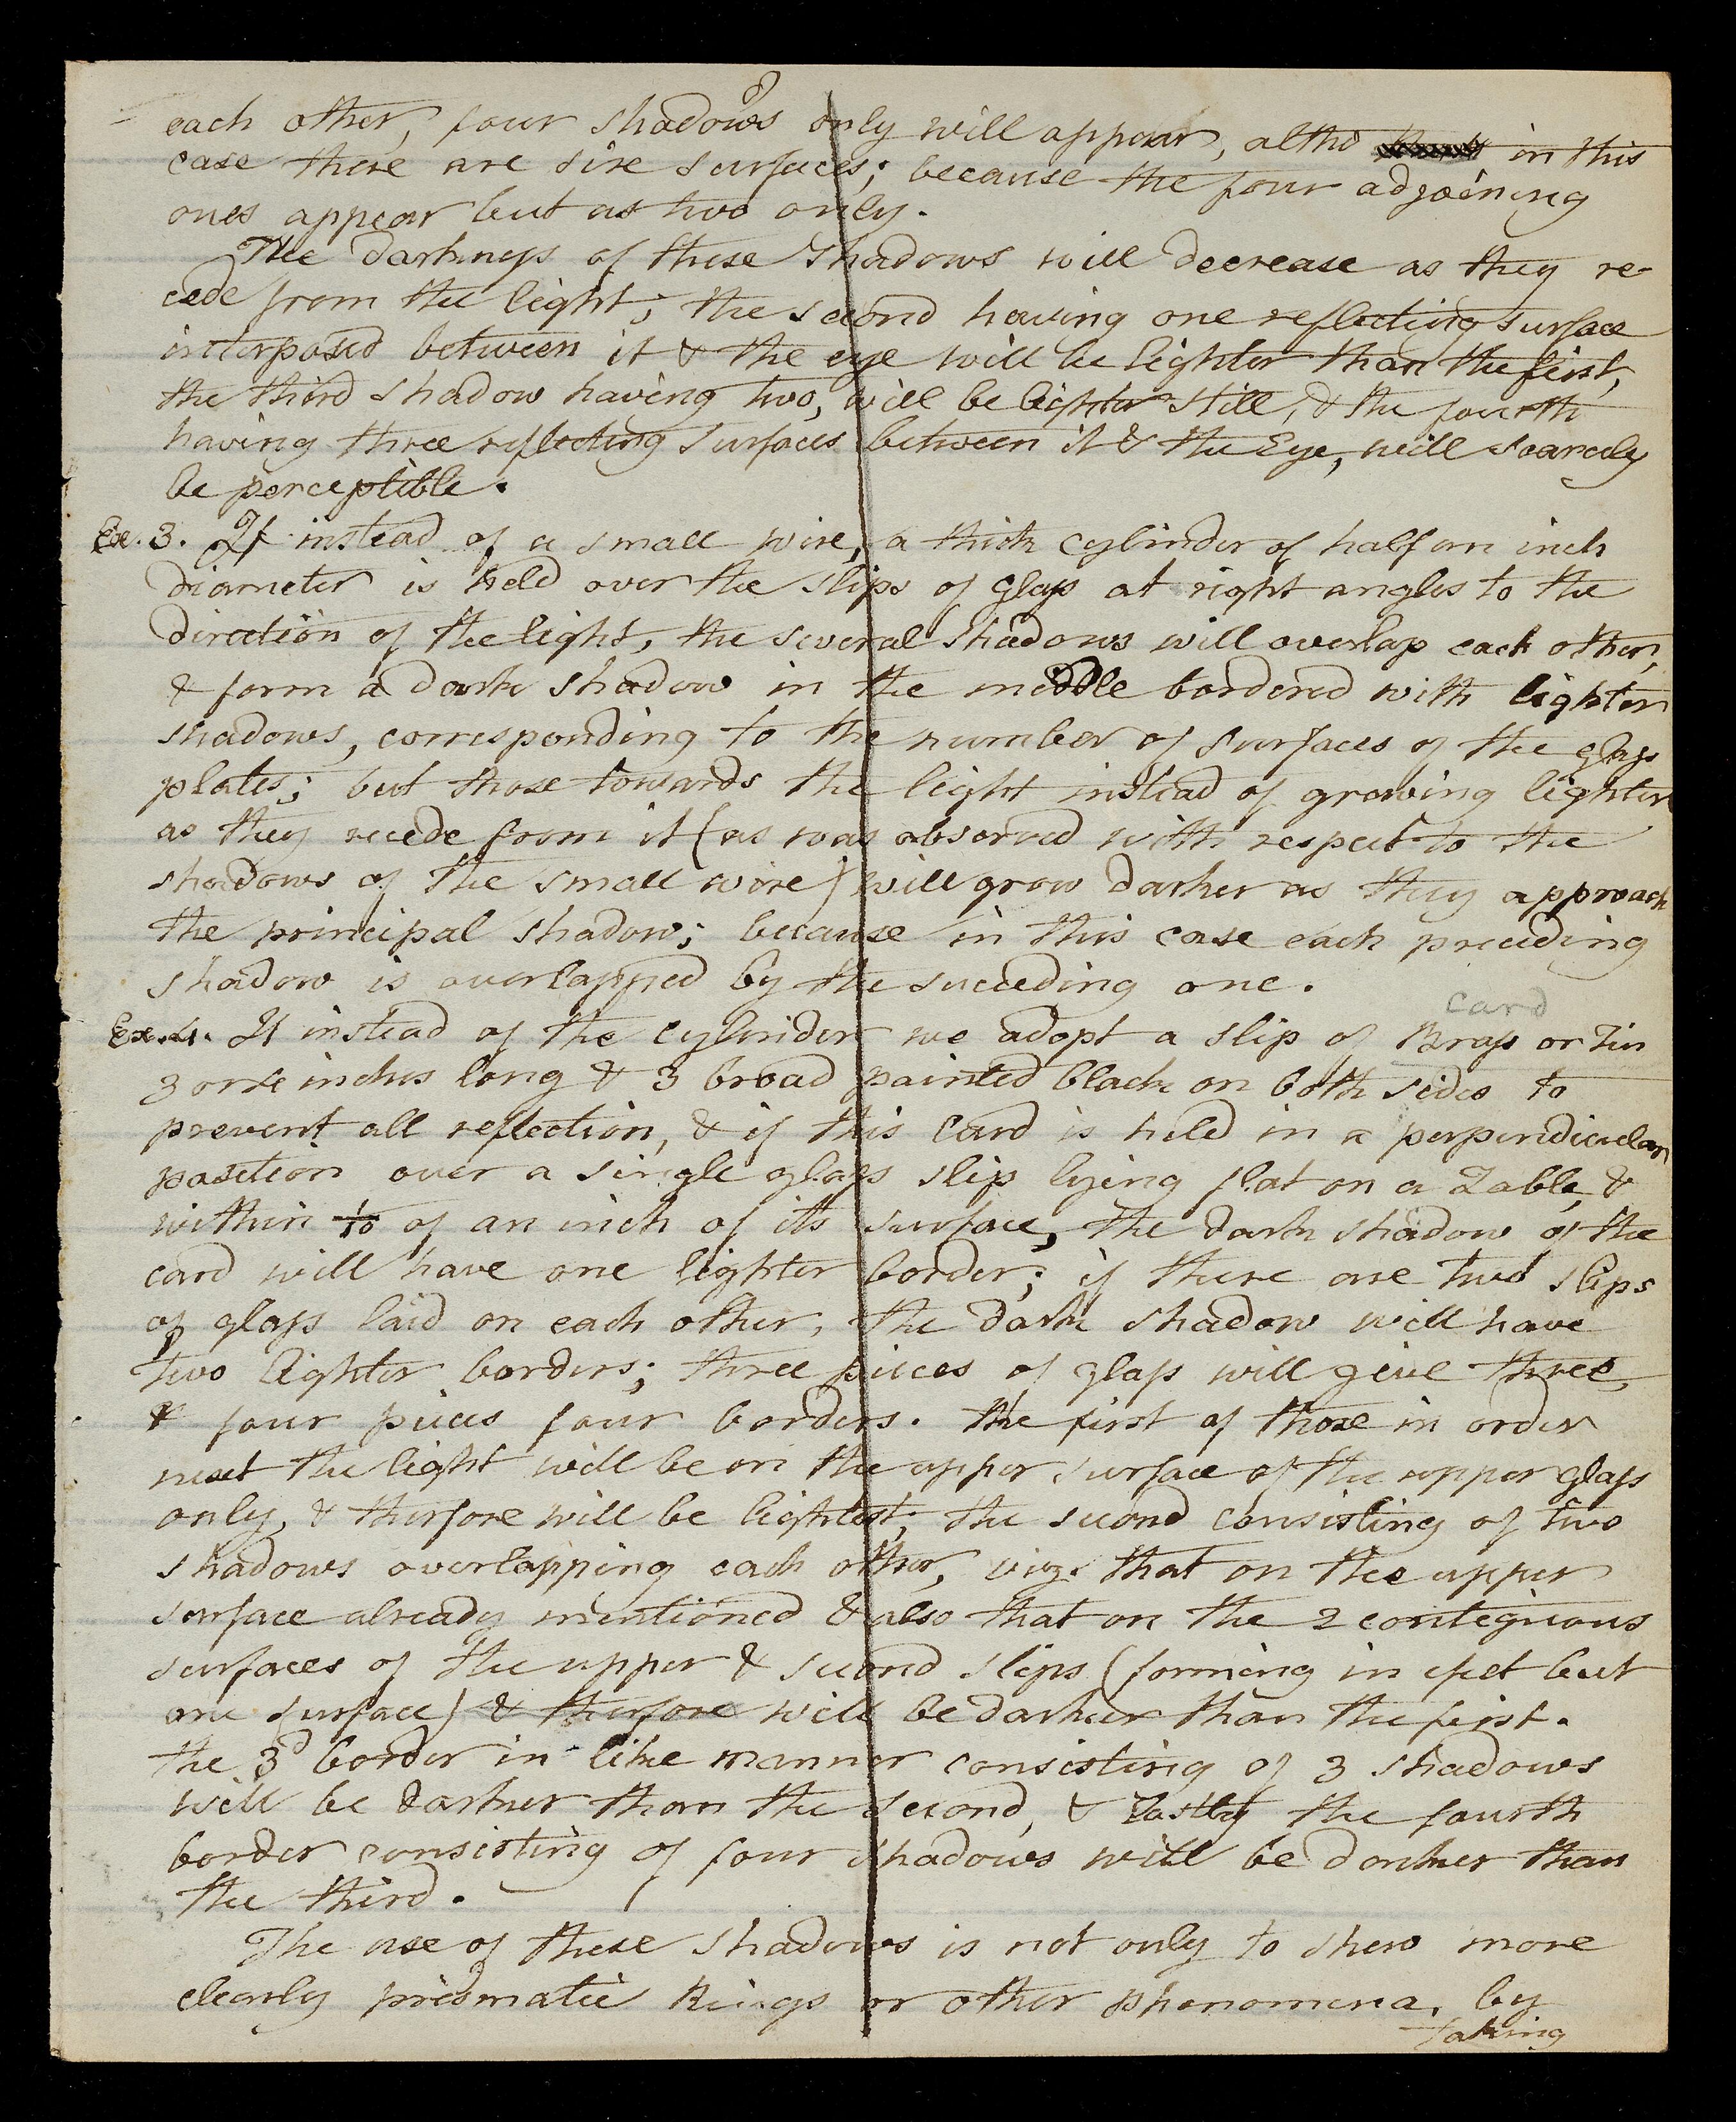 each other, four shadows only will appear, altho in this
case there are six surfaces; because the four adjoining
ones appear but as two only.
The darkness of these shadows will decrease as they re-
cede from the light; the second having one reflecting surface
interposed between it & the eye will be lighter than the first,
the third shadow having two, will be lighter still, & the fourth
having three reflecting surfaces between it & the Eye, will scarcely
be perceptible.
Ex. 3. If instead of a small wire, a thick cylinder of half an inch
diameter is held over the slips of glass at right angles to the
direction of the light, the several shadows will overlap each other,
& form a dark shadow in the middle bordered with lighter
shadows, corresponding to the number of surfaces of the glass
plates; but those towards the light instead of growing lighter
as they recede from it (as was observed with respect to the
shadows of the small wire) will grow darker as they approach
the principal shadow; because in this case each preceding
shadow is overlapped by the succeeding one.
card
Ex. 4. If instead of the cylinder we adopt a slip of Brass or Tin
3 or 4 inches long & 3 broad painted black on both sides to
prevent all reflection, & if this Card is held in a perpendicular
position over a single glass slip lying flat on a Table, &
within 1/10 of an inch of its surface, the dark shadow of the
card will have one lighter border; if there are two slips
of glass laid on each other, the dark shadow will have
two lighter borders; three pieces of glass will give three,
& four pieces four borders. the first of those in order
next the light will be on the upper surface of the upper glass
only, & therfore will be lightest; the second consisting of two
shadows overlapping each other, viz. that on the upper
surface already mentioned & also that on the 2 contiguous
surfaces of the upper & second slips (forming in efect but
one surface) & therfore will be darker than the first.
the 3d border in like manner consisting of 3 shadows
will be darker than the second, & lastly the fourth
border consisting of four shadows will be darker than
the third.
The use of these shadows is not only to shew more
clearly prismatic Rings or other phenomena, by
taking